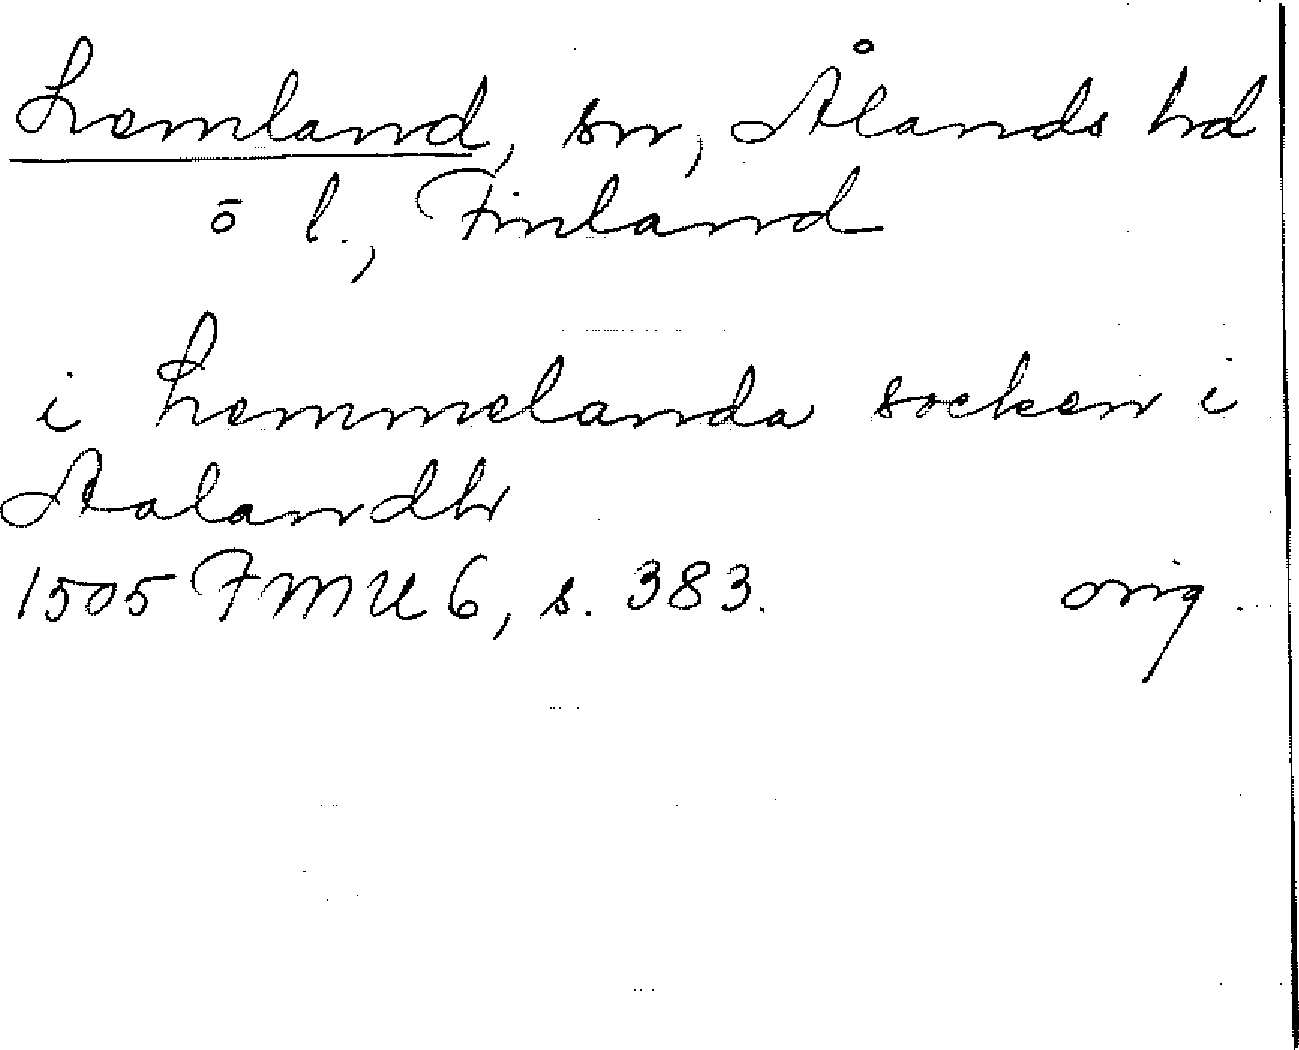 Lemland, sn, Ålands hd
o l., Finland
i Lemmelanda socken i
Aalandh
1505 FMU 6, s. 383. orig.